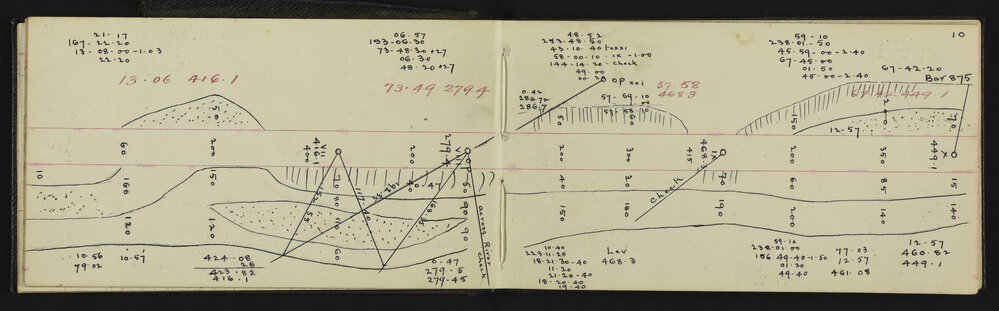 21.17
167-22.20
13-08-00-1.03
22.20
13.06 416.1
06.57
193-06.30
73-48.30+27
06.30
48.20+27
73.49 279.4
48.52
253-48.50
43-10-40 Poxxi
58-00-10 - ix -1.00
144-14-20 - Check
49.00
00.20
OP xxi
0.42
286.72
286.7
57-59-10
1-00
57-58-10
57.58
468.3
59-10
238.01.50
45-59.00-2.40
67-45.00
01.50
45-00-2.40
67-42-20
10
Bar 875
57.42 449.1
12.57
50
60
200
400
VII
416.1
200
VIII
279.4
OP
50
60
200
300
415
IX
468.3
150
200
350
70
449.1
X
10
160
150
70
80
40
0.47
50
90
40
30
70
60
85
15
120
120
152.55
117.40
192.35
168.35
110
60
90
Across River
Check
Check
150
190
190
200
140
140
10.56
79.02
10.57
424.08
26
423.82
416.1
0.47
279.5
279.45
10.40
223.11.20
18-21.30-40
11.20
21.20-40
18-20.40
19.40
Lev
468.3
59.10
238.01.00
156 49-40-1.50
01.20
49.40
77.03
12.57
461.08
12.57
460.82
449.1